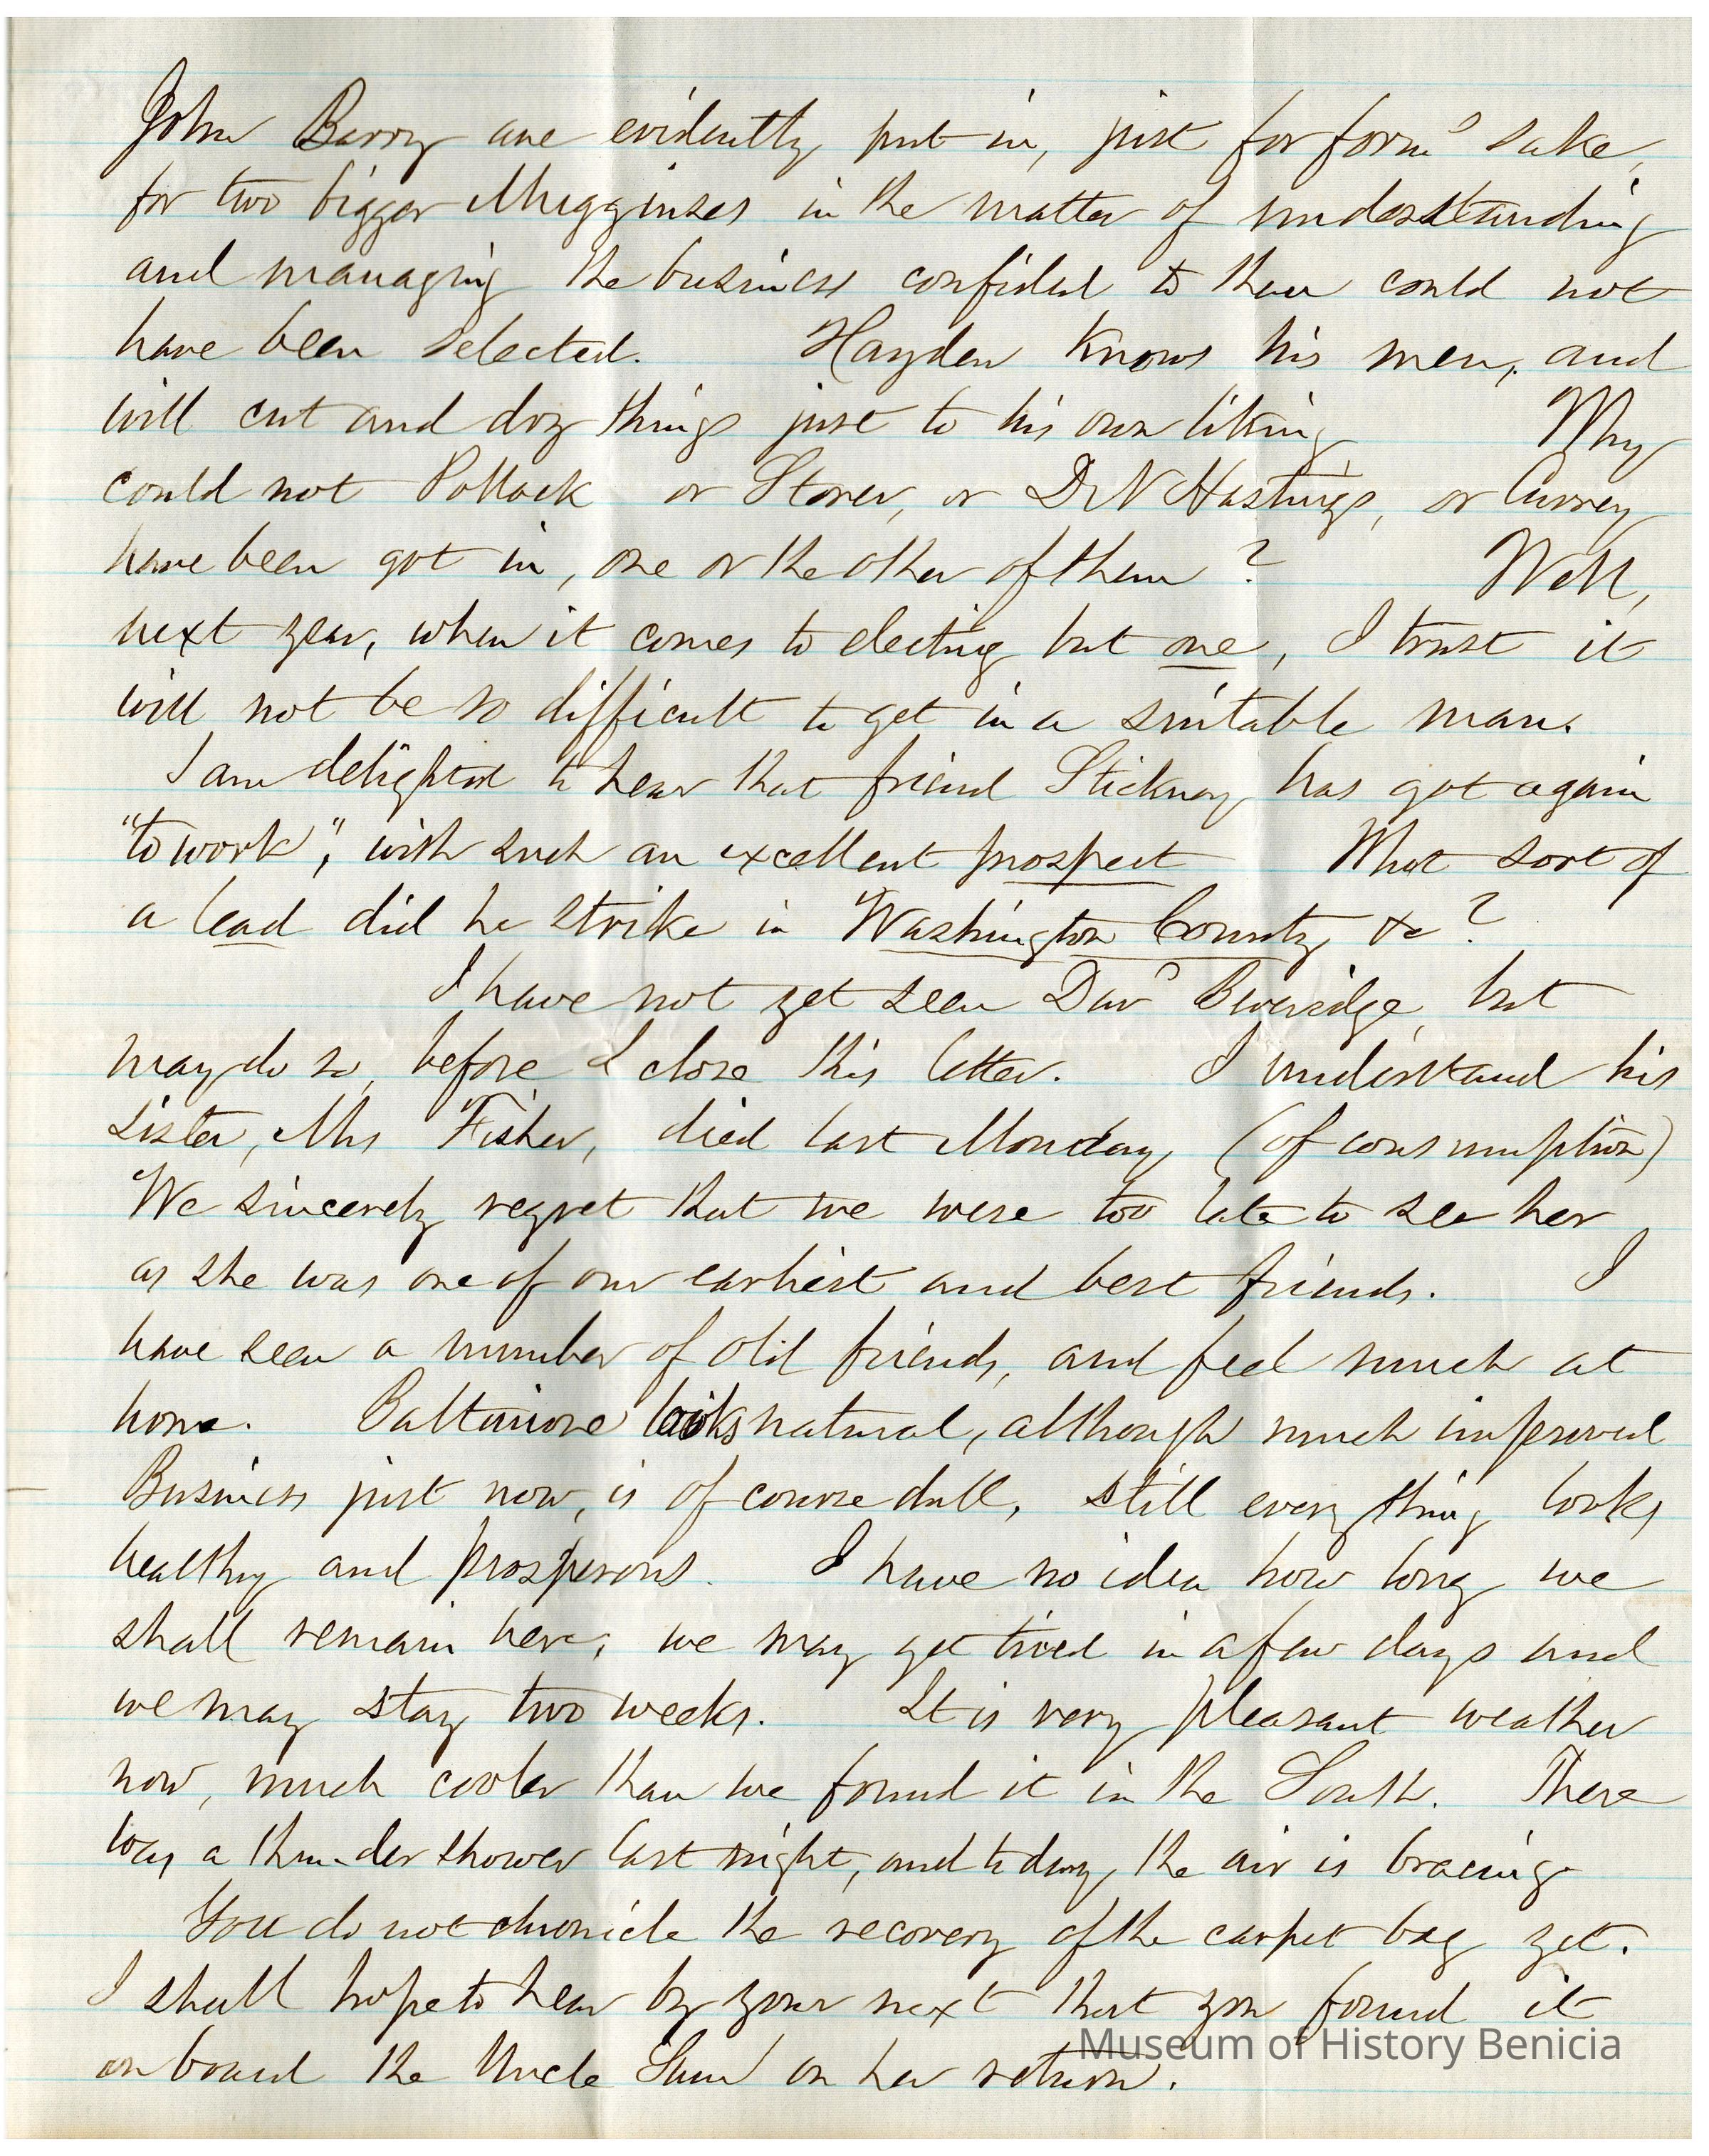 John Barry are evidently put in, just for form's sake,
for two bigger Mugginses in the matter of understanding
and managing the business confided to them could not
have been selected. Hayden knows his men, and
will cut and dry things just to his own liking Why
could not Pollack or Storer, or D N Hastings, or Currey
have been got in, one or the other of them? Well,
next year, when it comes to electing but one, I trust it
will not be so difficult to get in a suitable man.
I am delighted to hear that friend Stickney has got again
"to work", with such an excellent prospect What sort of
a lead did he strike in Washington County &c?
I have not yet seen Davd Beveridge, but
may do so, before I close this letter. I understand his
sister, Mrs Fisher, died last Monday, (of consumption)
We sincerely regret that we were too late to see her
as she was one of our earliest and best friends. I
have seen a number of old friends, and feel much at
home. Baltimore looks natural, although much improved
Business just now, is of course dull, still every thing looks
healthy and prosperous. I have no idea how long we
shall remain here; we may get tired in a few days and
we may stay two weeks. It is very pleasant weather
now, much cooler than we found it in the South. There
was a thunder shower last night, and to day, the air is bracing
You do not chronicle the recovery of the carpet bag yet.
I shall hope to hear by your next that you found it
on board the Uncle Sam on her return.
Museum of History Benicia